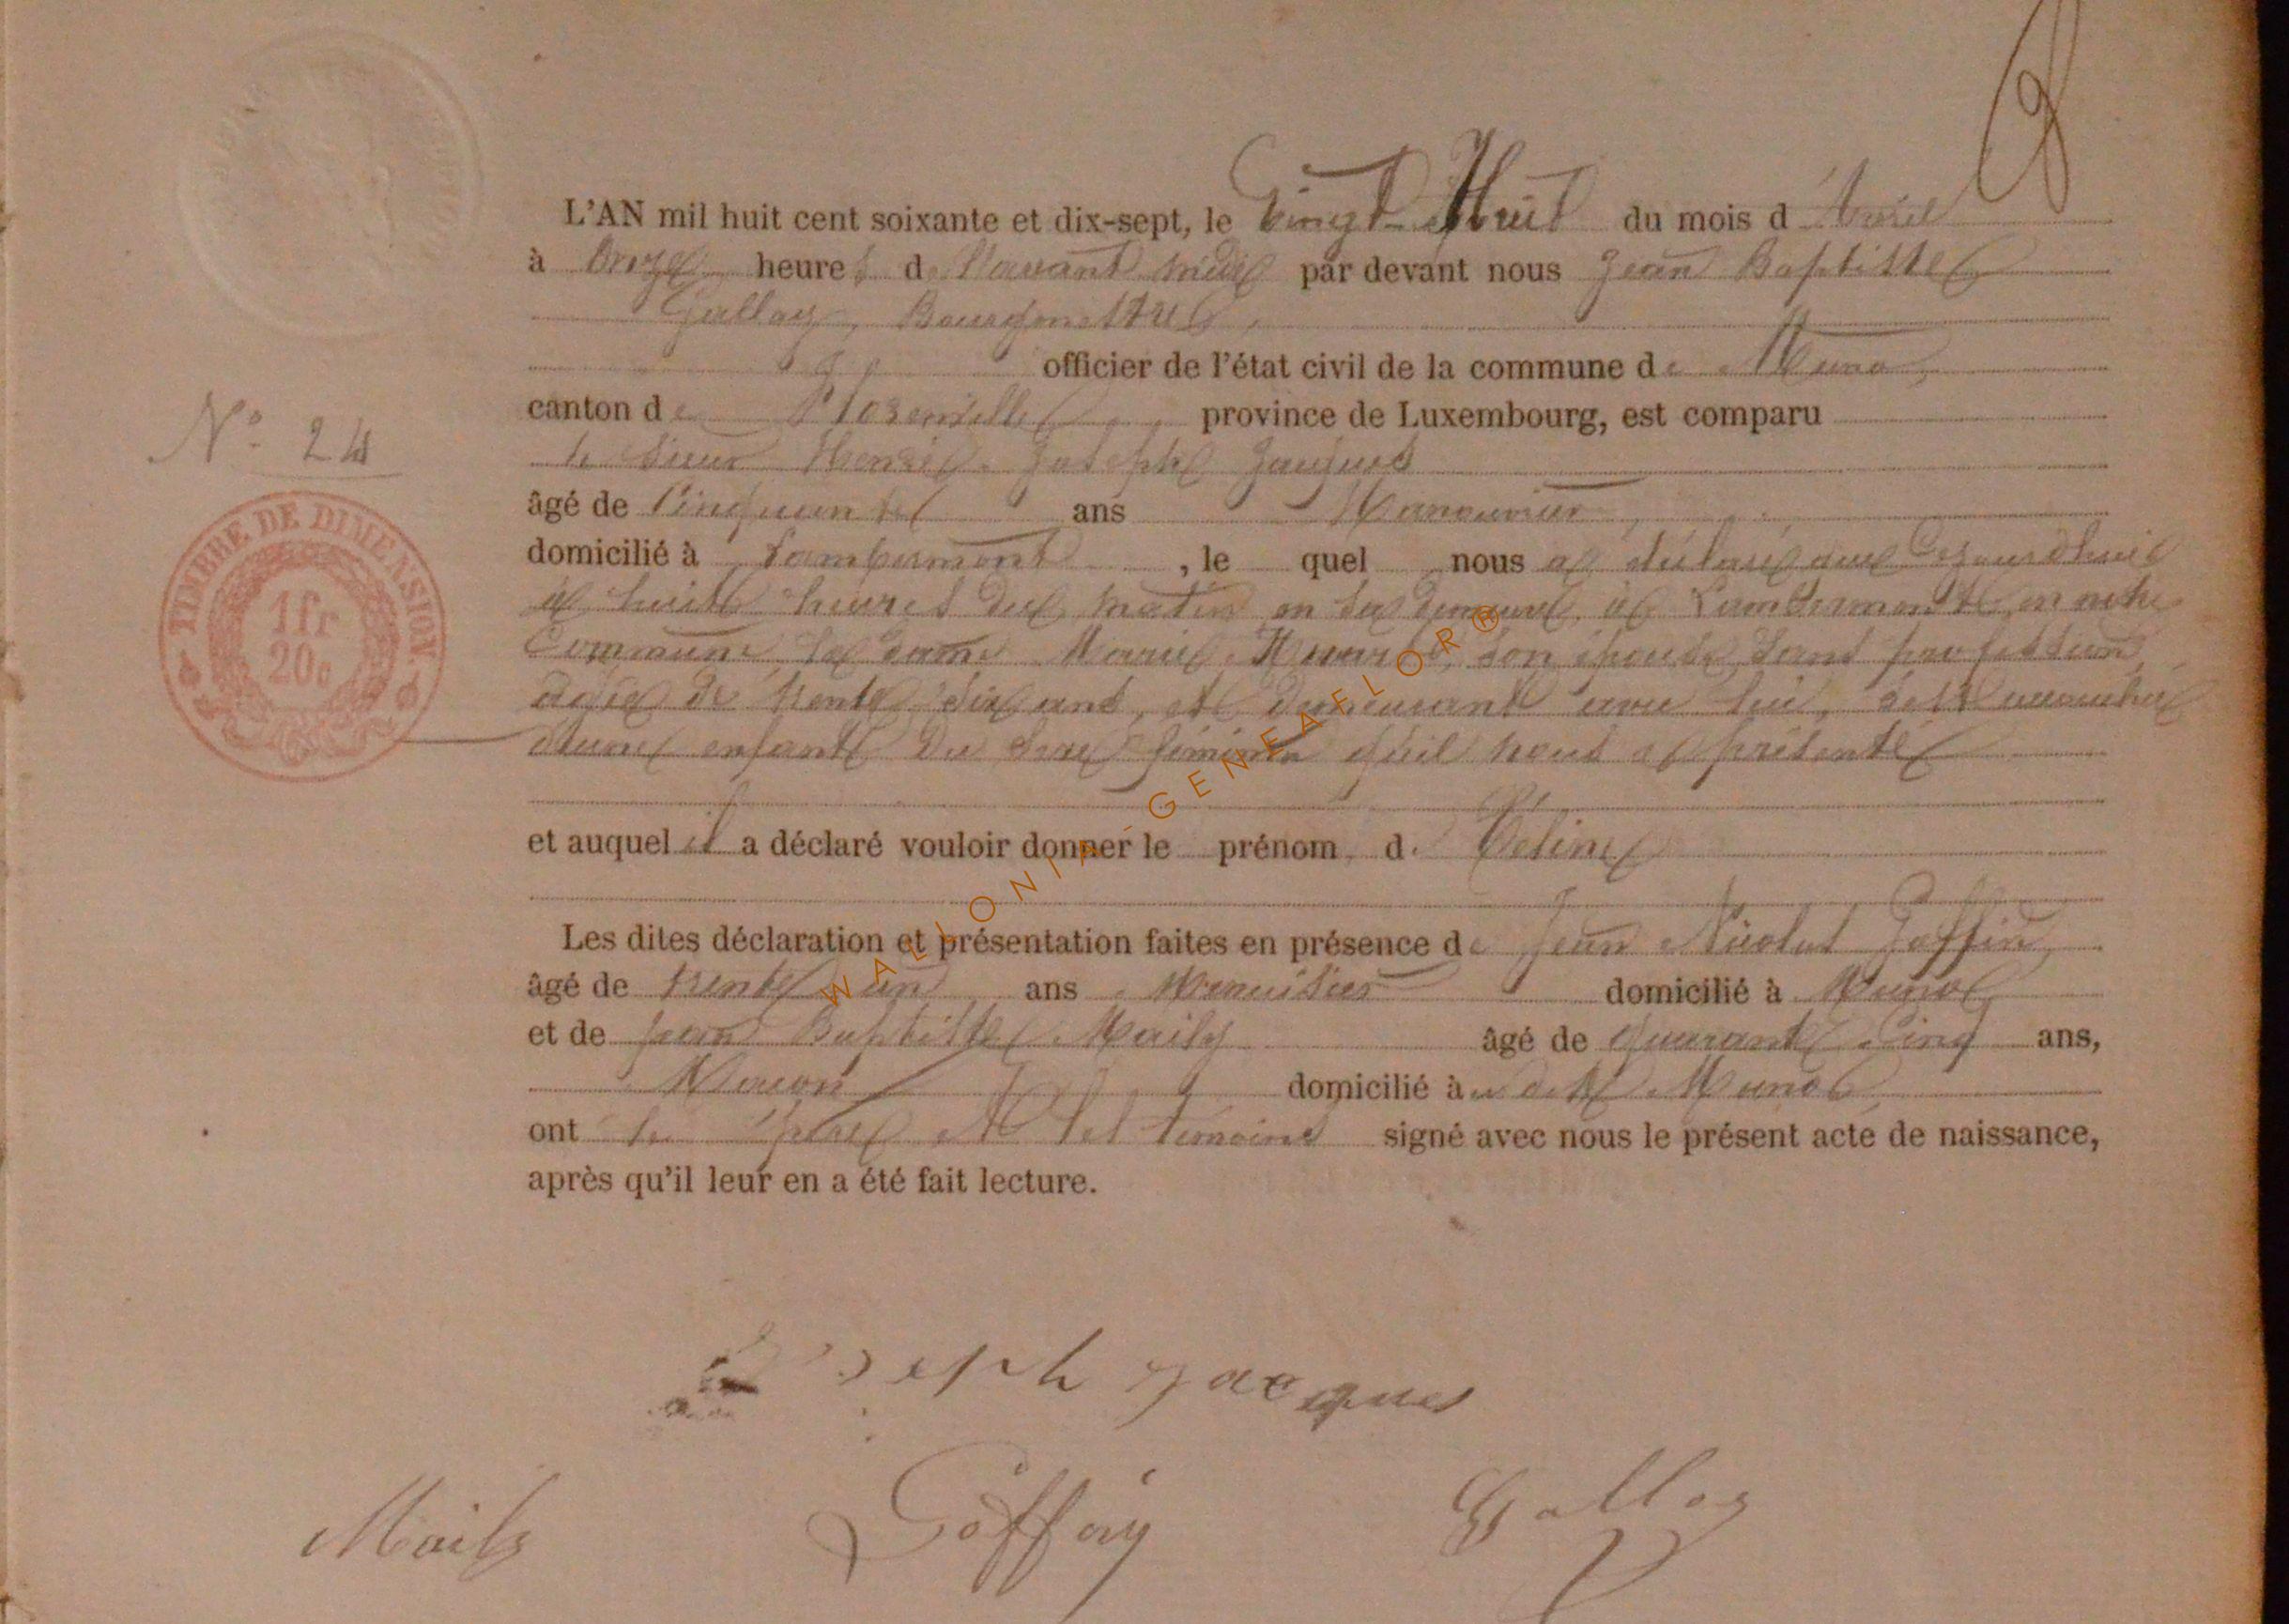 L'AN mil huit cent soixante et dix-sept, le Vingt-Huit du mois d'Avril
à Onze heures de l'avant midi par devant nous Jean Baptiste
Galloy, Bourgmestre,
officier de l'état civil de la commune de Muno,
canton de Florenville, province de Luxembourg, est comparu
le Sieur Henri Joseph Jacques
N° 24
âgé de Cinquante ans Manouvrier
domicilié à Lambermont, le quel nous a déclaré que Cejourd'hui
à huit heures du matin en sa demeure à Lambermont en notre
Commune, la dame Marie, son épouse, sans profession,
âgée de trente six ans, et demeurant avec lui, est accouchée
d'une enfant du sexe féminin qu'il nous a présenté
et auquel il a déclaré vouloir donner le prénom de Céline
Les dites déclaration et présentation faites en présence de Jean Nicolas Goffin,
âgé de trente un ans Menuisier domicilié à Muno,
et de Jean Baptiste Maily âgé de quarante Cinq ans,
Maçon domicilié à Muno,
ont le père et les témoins signé avec nous le présent acte de naissance,
après qu'il leur en a été fait lecture.
TIMBRE DE DIMENSION.
1fr
20c
WALLONIA-GENEAFLOR®
Joseph Jacques
Maily Goffin Galloy